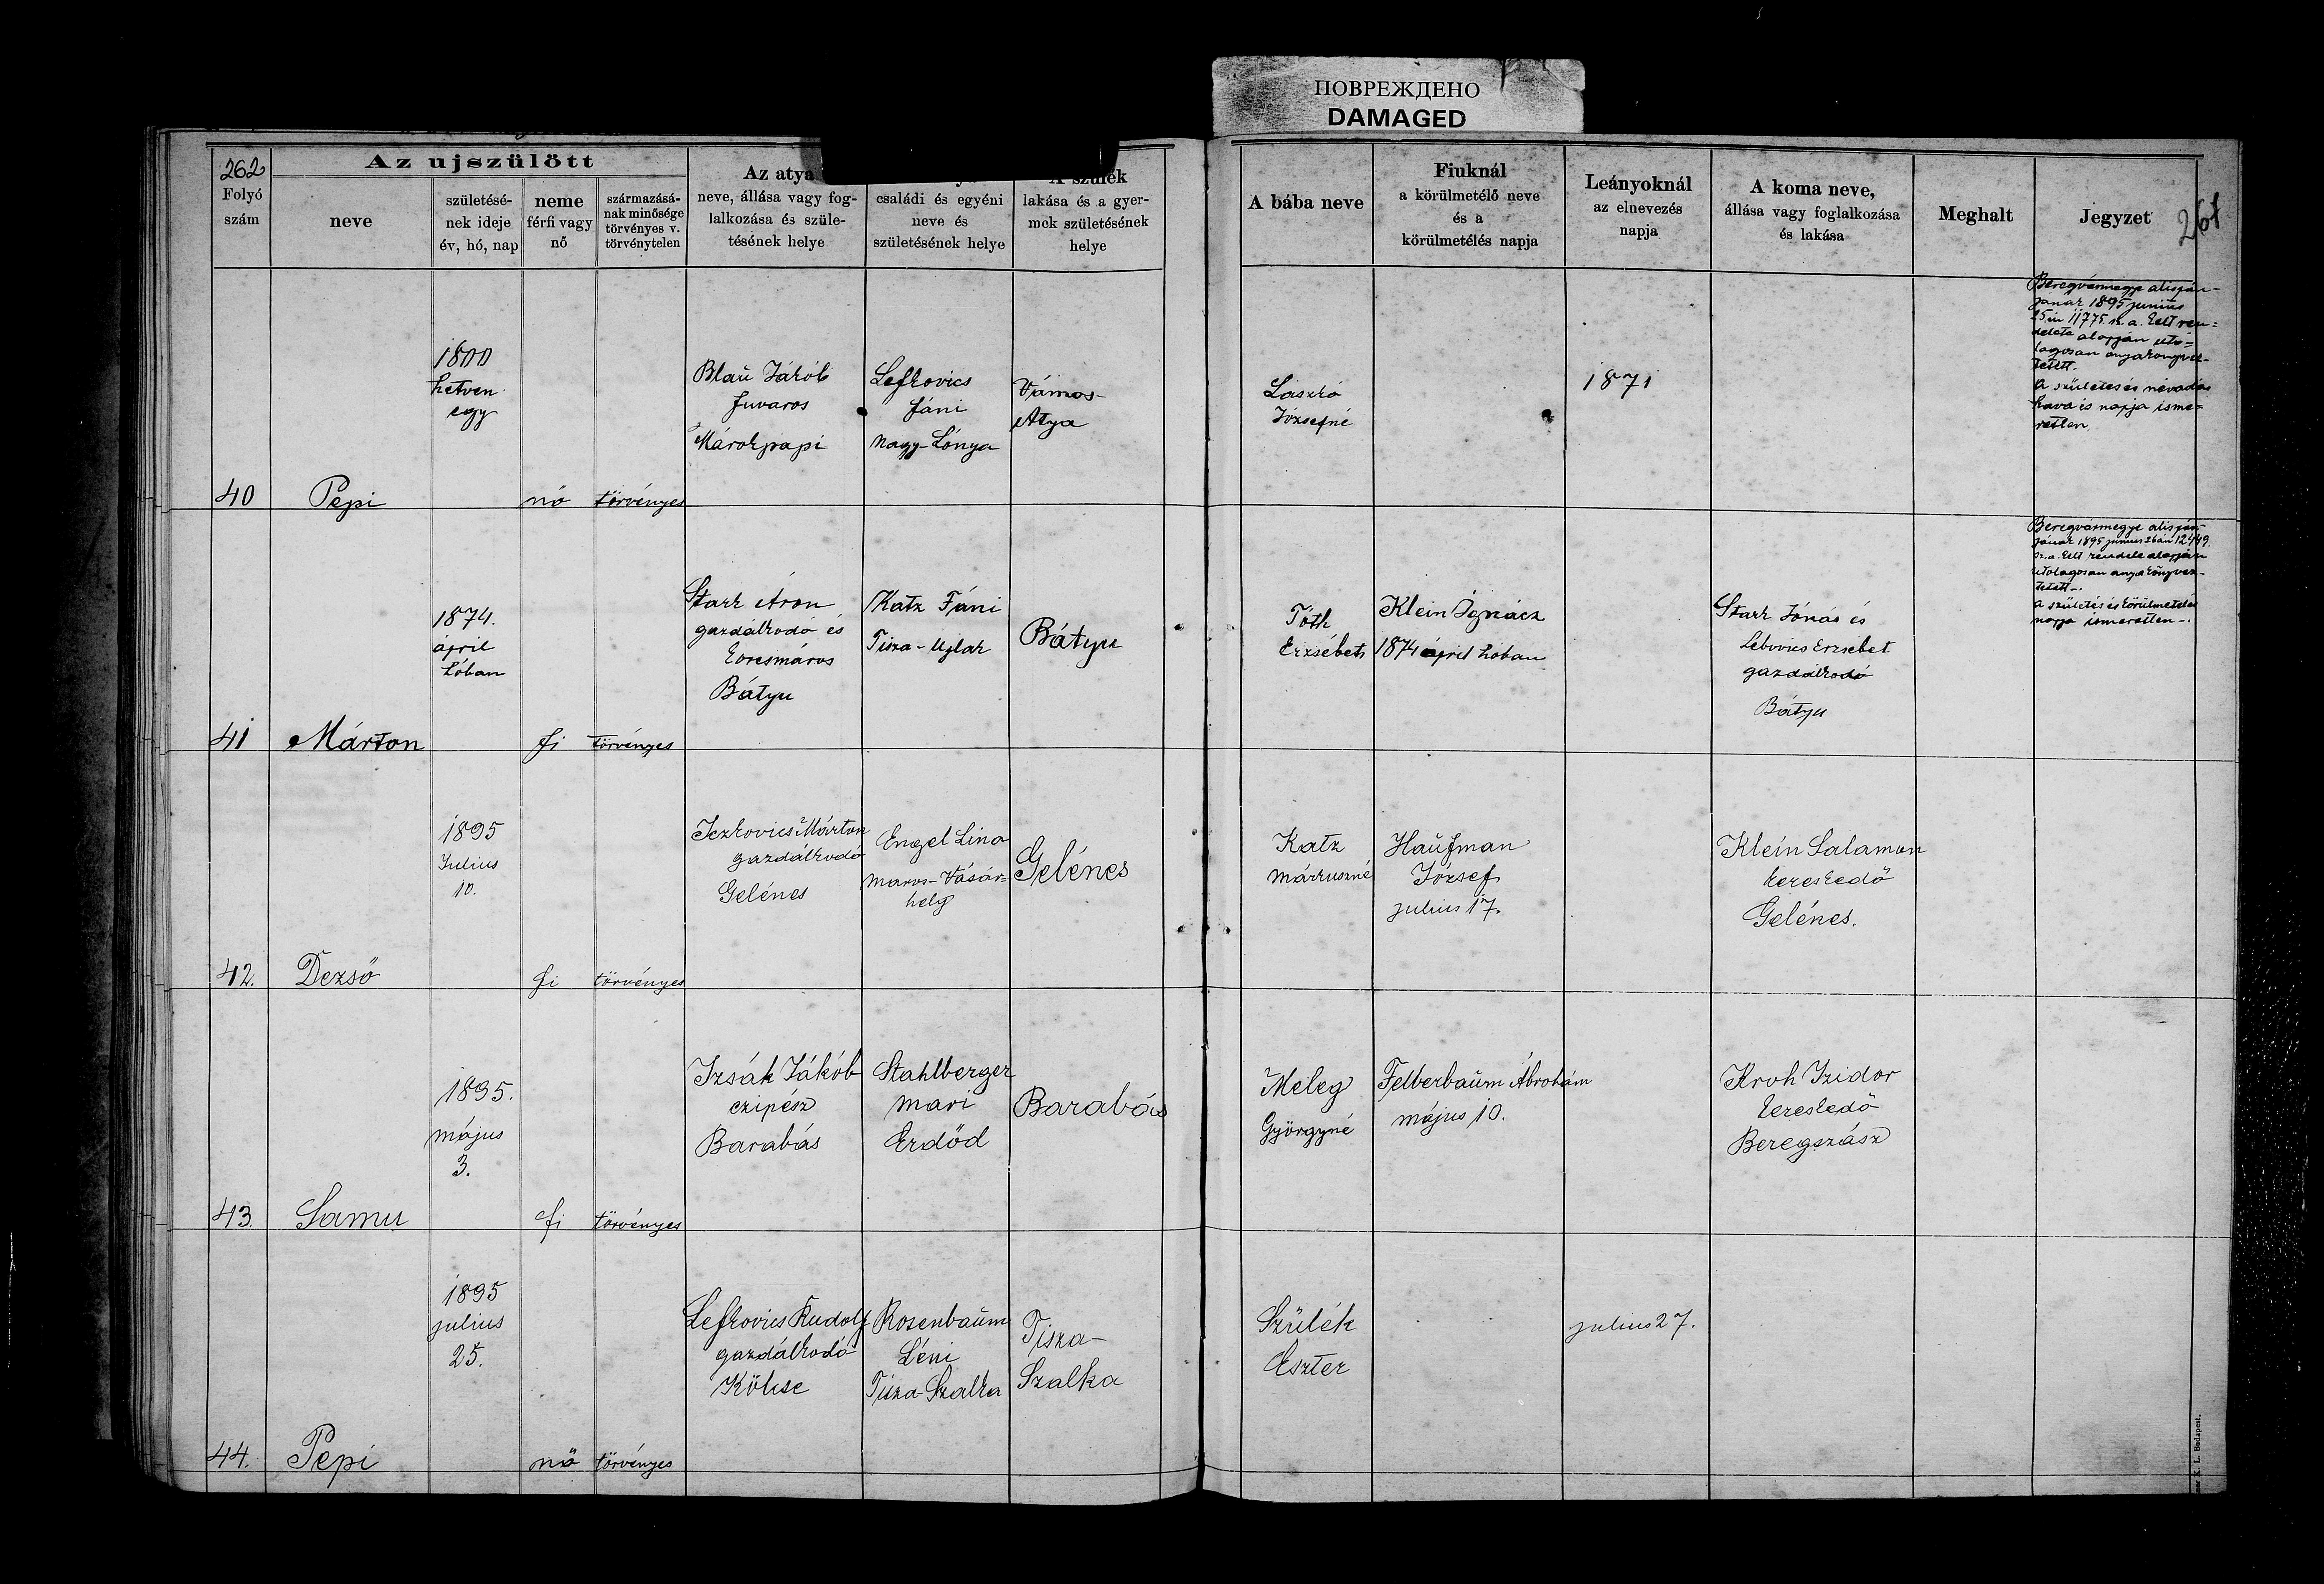 ПОВРЕЖДЕНО
DAMAGED
262
Folyó
szám
Az ujszülött
neve
születésé-
nek ideje
év, hó, nap
neme
férfi vagy
nő
származásá-
nak minősége
törvényes v.
törvénytelen
Az atya
neve, állása vagy fog-
lalkozása és szüle-
tésének helye
családi és egyéni
neve és
születésének helye
A szülék
lakása és a gyer-
mek születésének
helye
A bába neve
Fiuknál
a körülmetélő neve
és a
körülmetélés napja
Leányoknál
az elnevezés
napja
A koma neve,
állása vagy foglalkozása
és lakása
Meghalt
Jegyzet
261
40
Pepi
1800
hetven
egy
nő
törvényes
Blau Jákób
fuvaros
Márokpapi
Lefkovics
Fáni
Nagy-Lónya
Vámos-
Atya
László
Józsefné
1871
Beregvármegye alispán-
jának 1895 junius
25én 11775 sz. a. kelt ren-
delete alapján utó-
lagosan anyakönyvez-
tetett.
A születés és névadás
hava és napja isme-
retlen
41
Márton
1874.
ápril
hóban
fi
törvényes
Stark Áron
gazdálkodó és
korcsmáros
Bátyu
Katz Fáni
Tisza-Ujlak
Bátyu
Tóth
Erzsébet
Klein Ignácz
1874 ápril hóban
Stark Jónás és
Lebovics Erzsébet
gazdálkodó
Bátyu
Beregvármegye alispán-
jának 1895 junius 26án 12449.
sz. a. kelt rendele alapján
utólagosan anyakönyvez-
tetett.
A születés és körülmetélés
napja ismeretlen.
42.
Dezső
1895
Julius
10.
fi
törvényes
Iczkovics Márton
gazdálkodó
Gelénes
Engel Lina
Maros-Vásár-
hely
Gelénes
Katz
Márkuszné
Haufman
József
julius 17.
Klein Salamon
kereskedő
Gelénes.
43.
Samu
1895.
május
3.
fi
törvényes
Izsák Jákób
czipész
Barabás
Stahlberger
Mari
Erdőd
Barabás
Meleg
Györgyné
Felberbaum Ábrahám
május 10.
Kroh Izidor
kereskedő
Beregszász
44.
Pepi
1895
julius
25.
nő
törvényes
Lefkovics Rudolf
gazdálkodó
Kölcse
Rosenbaum
Léni
Tisza-Szalka
Tisza-
Szalka
Szülék
Eszter
julius 27.
K. L. Budapest.